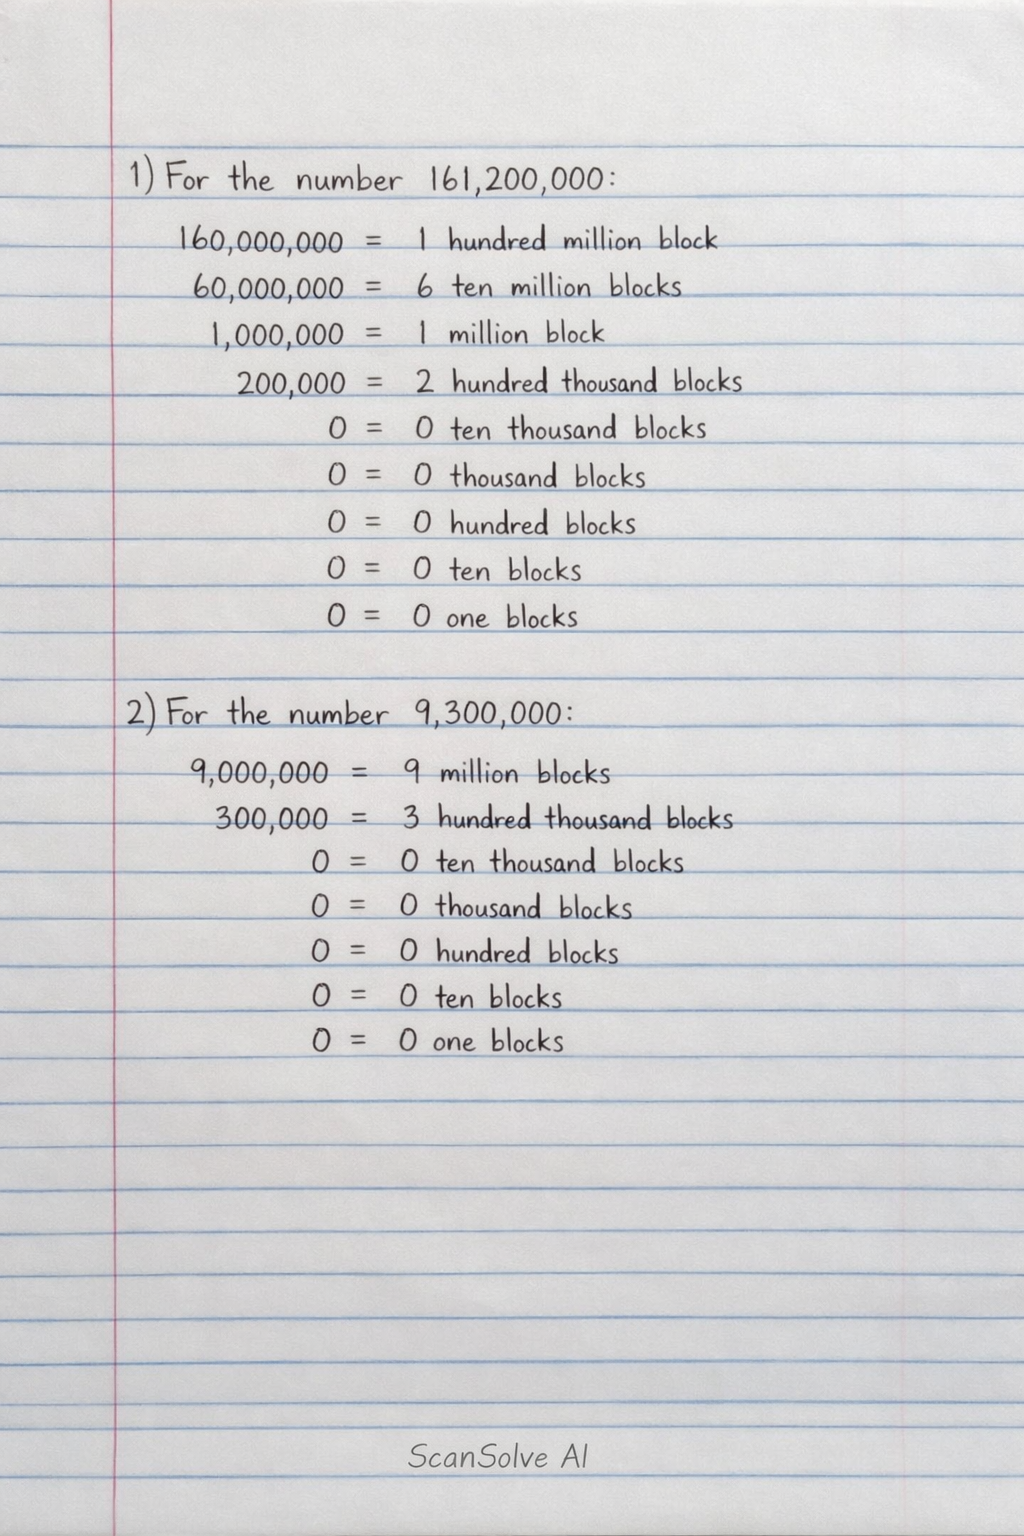 1) For the number 161,200,000:
160,000,000 = 1 hundred million block
60,000,000 = 6 ten million blocks
1,000,000 = 1 million block
200,000 = 2 hundred thousand blocks
0 = 0 ten thousand blocks
0 = 0 thousand blocks
0 = 0 hundred blocks
0 = 0 ten blocks
0 = 0 one blocks
2) For the number 9,300,000:
9,000,000 = 9 million blocks
300,000 = 3 hundred thousand blocks
0 = 0 ten thousand blocks
0 = 0 thousand blocks
0 = 0 hundred blocks
0 = 0 ten blocks
0 = 0 one blocks
ScanSolve AI